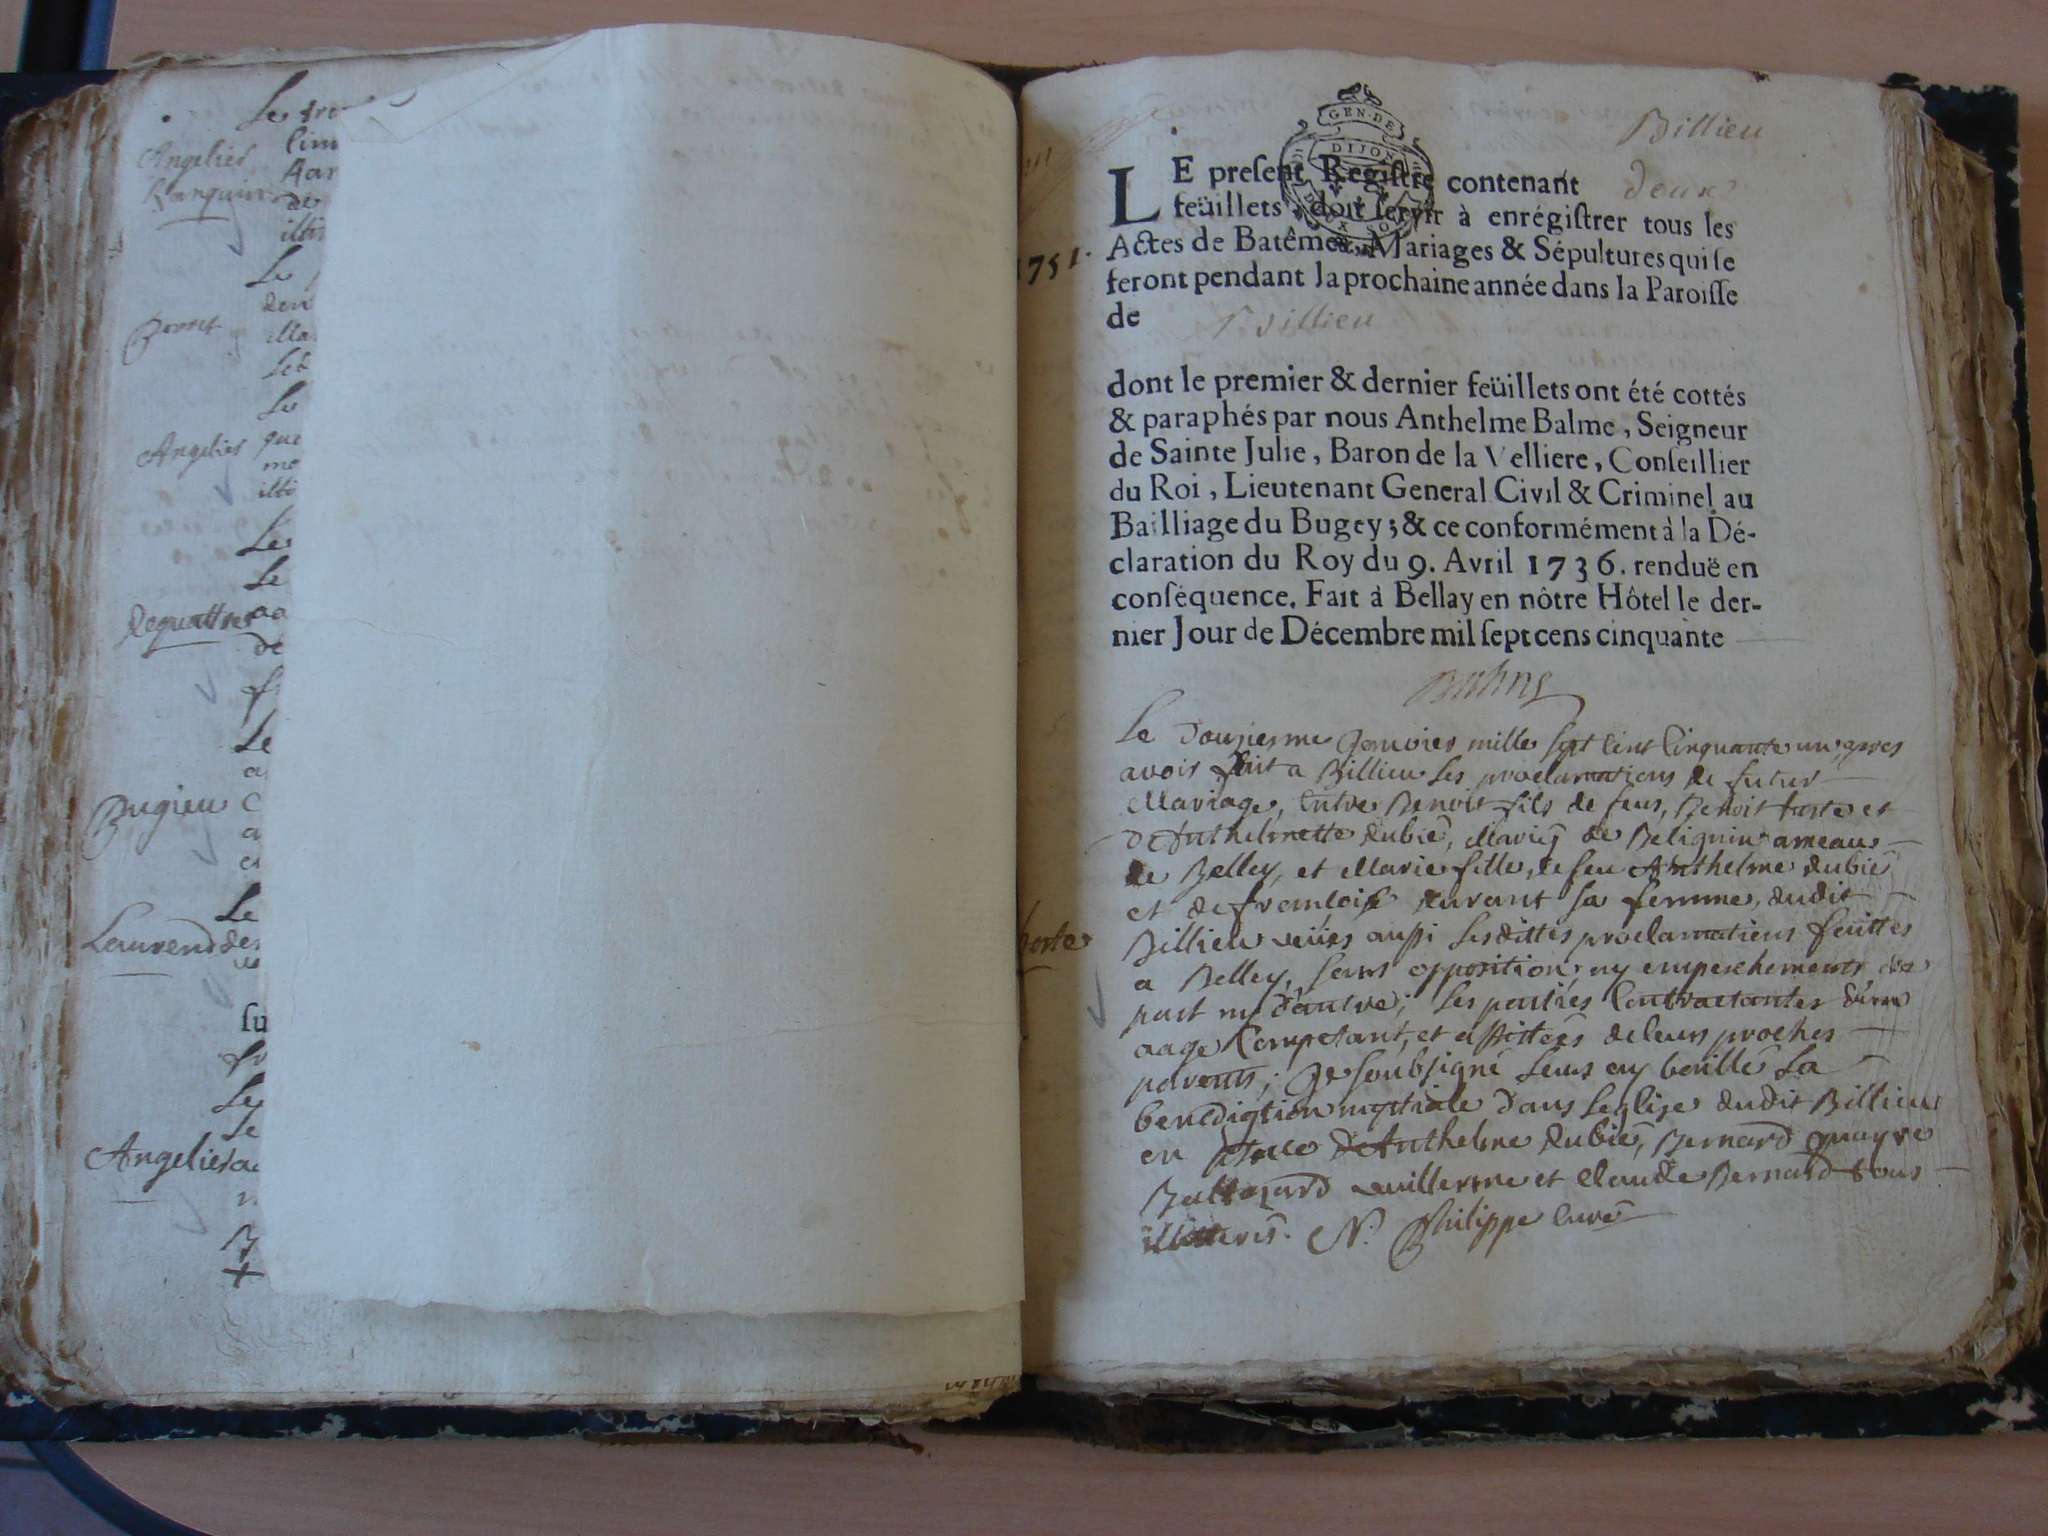 Angelier
Le
Bonnet
Angelier
que
Le
Le
de
Le
Bugieu
Le
Laurend
Le
Le
Angelier
GEN. DE
DIJON
Billieu
LE preſent Regiſtre contenant deux
feüillets, doit ſervir à enrégiſtrer tous les
1751. Actes de Batêmes, Mariages & Sépultures qui ſe
feront pendant la prochaine année dans la Paroiſſe
de Billieu
dont le premier & dernier feüillets ont été cottés
& paraphés par nous Anthelme Balme, Seigneur
de Sainte Julie, Baron de la Velliere, Conſeillier
du Roi, Lieutenant General Civil & Criminel au
Bailliage du Bugey; & ce conformément à la Dé-
claration du Roy du 9. Avril 1736. renduë en
conſéquence. Fait à Bellay en nôtre Hôtel le der-
nier Jour de Décembre mil ſept cens cinquante
Balme
Le douziesme Janvier mille sept cent cinquante un, apres
avoir fait a Billieu les proclamations de futur
Mariage, entre Benoit fils de feus, Benoit horte et
d'Anthelmette dubié, mariés de Belignin ameaus
de Belley, et Marie fille, de feu Anthelme dubié
et de francoise durant sa femme, dudit
horte Billieu veües aussi lesdittes proclamations faittes
a Belley, sans opposition, ny empeschements de
part ny d'autre; les parties contractantes d'un
aage Competant, et assistées de leurs proches
parents; Je soubsigné leurs ay baillé La
benediction nuptiale dans Leglise dudit Billieu
en d'Anthelme dubié, Bernard
Baltazard vuillerme et Claude Bernard tous
illitterés. N. Philippe curé